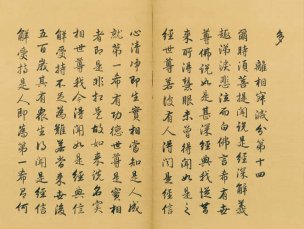 多
離相寂滅分第十四
爾時須菩提聞說是經深解義
趣涕淚悲泣而白佛言希有世
尊佛說如是甚深經典我從昔
來所得慧眼未曾得聞如是之
經世尊若復有人得聞是經信
心清淨即生實相當知是人成
就第一希有功德世尊是實相
者即是非相是故如來說名實
相世尊我今得聞如是經典信
解受持不足為難若當來世後
五百歲其有衆生得聞是經信
解受持是人即為第一希有何